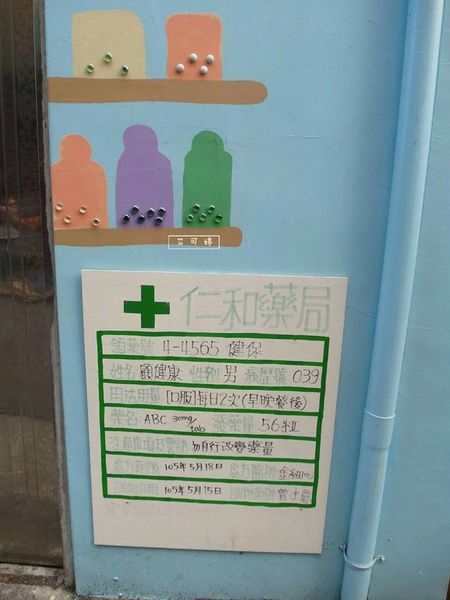 艾可博
仁和藥局
領藥號 4-4565 健保
姓名 顧健康 性別 男 病歷號 039
用法用量 [口服]每日2次(早晚餐後)
藥名 ABC 30mg/tab 總藥量 56粒
注意事項及警語 勿自行改變藥量
處方日期 105年5月18日 處方醫師
調劑日期 105年5月15日 調劑藥師